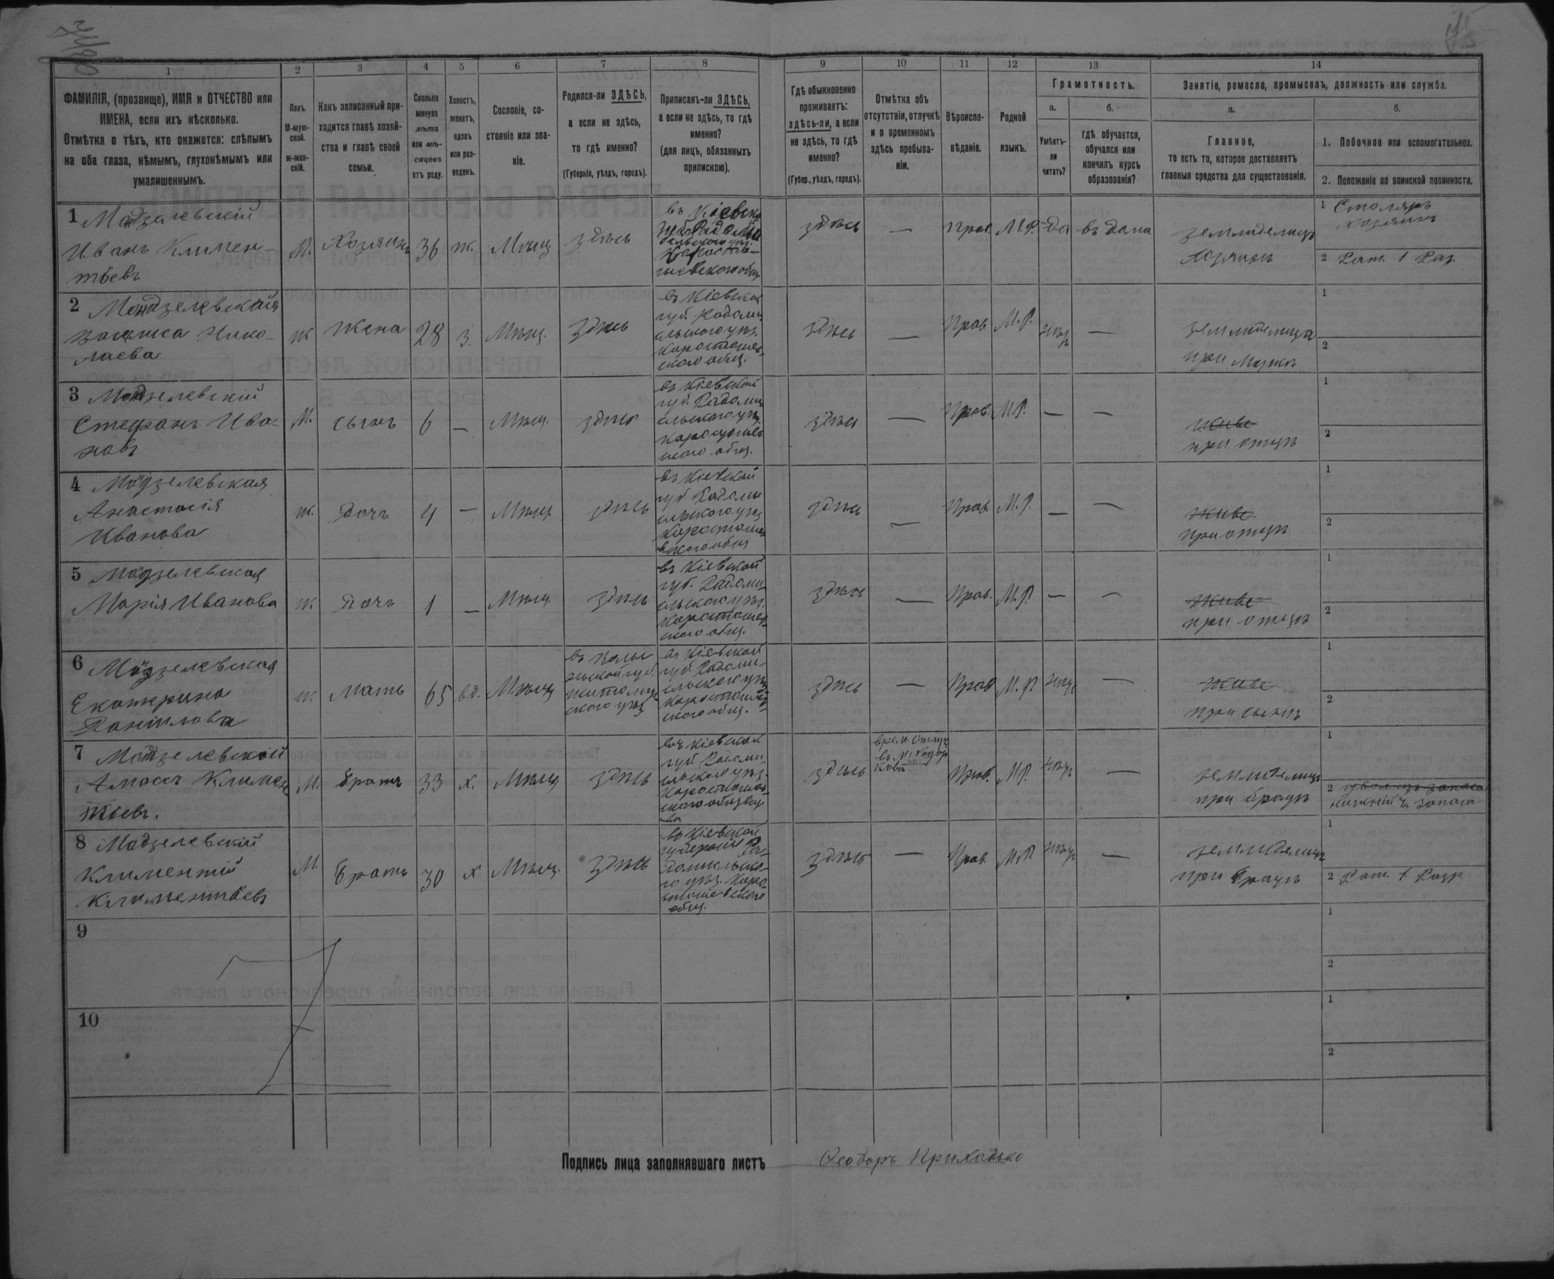 78
1
2
3
4
5
6
7
8
9
10
11
12
13
14
ФАМИЛІЯ, (прозвище), ИМЯ и ОТЧЕСТВО или
ИМЕНА, если ихъ нѣсколько.
Отмѣтка о тѣхъ, кто окажется: слѣпымъ
на оба глаза, нѣмымъ, глухонѣмымъ или
умалишеннымъ.
Полъ.
М-муж-
ской.
ж-жен-
скій.
Какъ записанный при-
ходится главѣ хозяй-
ства и главѣ своей
семьи.
Сколько
минуло
лѣтъ
или мѣ-
сяцевъ
отъ роду.
Холостъ,
женатъ,
вдовъ
или раз-
веденъ.
Сословіе, со-
стояніе или зва-
ніе.
Родился-ли ЗДѢСЬ,
а если не здѣсь,
то гдѣ именно?
(Губернія, уѣздъ, городъ).
Приписанъ-ли ЗДѢСЬ,
а если не здѣсь, то гдѣ
именно?
(для лицъ, обязанныхъ
припискою).
Гдѣ обыкновенно
проживаетъ:
здѣсь-ли, а если
не здѣсь, то гдѣ
именно?
(Губер., уѣздъ, городъ).
Отмѣтка объ
отсутствіи, отлучкѣ
и о временномъ
здѣсь пребыва-
ніи.
Вѣроиспо-
вѣданіе.
Родной
языкъ.
Грамотность.
а.
Умѣетъ-
ли
читать?
б.
Гдѣ обучается,
обучался или
кончилъ курсъ
образованія?
Занятіе, ремесло, промыселъ, должность или служба.
а.
Главное,
то есть то, которое доставляетъ
главныя средства для существованія.
б.
1. Побочное или вспомогательное.
2. Положеніе по воинской повинности.
1 Модзелевскій
Иванъ Климен-
тьевъ
М. Хозяинъ 36 ж. Мѣщ здѣсь
въ Кіевской
губ Радомы
сльского уѣз.
Коросты-
шевского общ.
здѣсь — Прав. М.Р. Да въ дома
земледелецъ
хозяинъ
1 Столяръ
хозяинъ
2 Рат. 1 Раз.
2 Модзелевская
Нико-
лаева
ж жена 28 з. Мѣщ. здѣсь
въ Кіевской
губ Радомы
сльского уѣз.
Коростышев-
ского общ.
здѣсь — Прав М.Р. —
земледелица
при мужѣ
1
2
3 Модзелевскій
Стефанъ Ива-
новъ
М. сынъ 6 — Мѣщ. здѣсь
въ Кіевской
губ. Радомы
сльского уѣз
Коростышев
ского общ.
здѣсь — Прав. М.Р. — —
живе
при отцѣ
1
2
4 Модзелевская
Анастасія
Иванова
ж. дочь 4 — Мѣщ здѣсь
въ Кіевской
губ Радомы
сльского уѣз
Коростыше
вского общ
здѣсь — Прав. М.Р. — —
живе
при отцѣ
1
2
5 Модзелевская
Марія Иванова
ж. дочь 1 — Мѣщ здѣсь
въ Кіевской
губ. Радомы
сльского уѣз.
Коростышев
ского общ.
здѣсь — Прав. М.Р. — —
живе
при отцѣ
1
2
6 Модзелевская
Екатерина
Данілова
ж. мать 65 вд. Мѣщ
въ Волы
нской губ.
Житомир
ского уѣз
въ Кіевской
губ Радомы-
сльского уѣз
Коростышев
ского общ.
здѣсь — Прав М.Р —
живе
при сынѣ
1
2
7 Модзелевскій
Амосъ Климен
тьевъ.
М. братъ 33 х. Мѣщ здѣсь
въ Кіевской
губ Радомы
сльского уѣз
Коростышев
ского
здѣсь Прав. М.Р. —
земледелецъ
при братѣ
1
2 запаса
запаса
8 Модзелевскій
Климентій
Климентьевъ
М братъ 30 х Мѣщ. здѣсь
въ Кіевской
губерніи Ра-
домысльско-
го уѣз. Коро
стышевского
общ.
здѣсь — Прав. М.Р —
земледелецъ
при братѣ
1
2 Рат. 1 Разр
9
1
2
10
1
2
Подпись лица заполнявшаго листъ Феодоръ Приходько